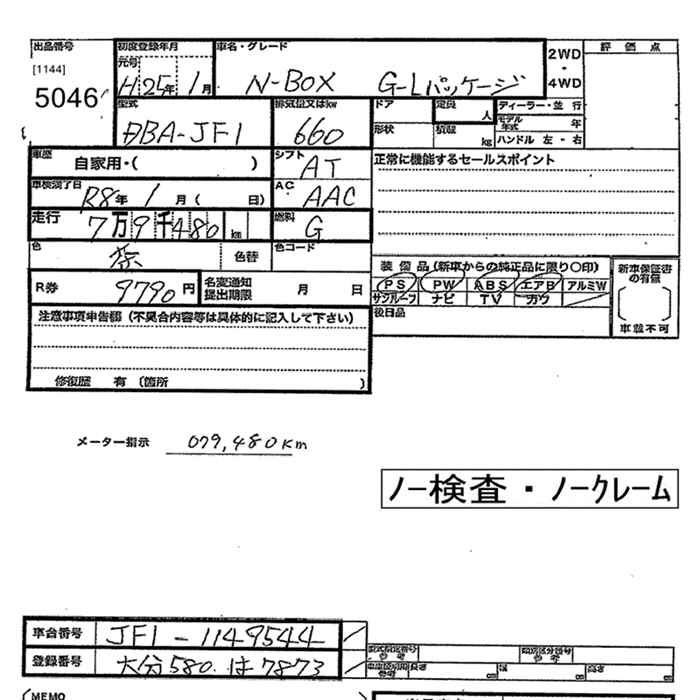 出品番号 初度登録年月 車名・グレード 2WD・4WD 評価点
[1144] 元号
5046 H25年1月 N-BOX G-Lパッケージ
型式 排気量又はkw ドア 定員 人 ディーラー・並行
DBA-JF1 660 形状 積載 kg モデル年式 年
ハンドル 左・右
車歴 自家用・( ) シフト AT 正常に機能するセールスポイント
車検満了日 R8年1月( 日) AC AAC
走行 7万9千480km 燃料 G
色 茶 色替 色コード 装備品(新車からの純正品に限り○印) 新車保証書の有無
R券 9790円 名変通知提出期限 月 日 PS PW ABS エアB アルミW
サンルーフ ナビ TV カワ
注意事項申告欄(不具合内容等は具体的に記入して下さい) 後日品 車載不可
修復歴 有 (箇所 )
メーター指示 079,480Km
ノー検査・ノークレーム
車台番号 JF1-1149544
型式指定番号 参考 類別区分番号 参考
登録番号 大分580 は7873
長さ cm 幅 cm 高さ cm
MEMO